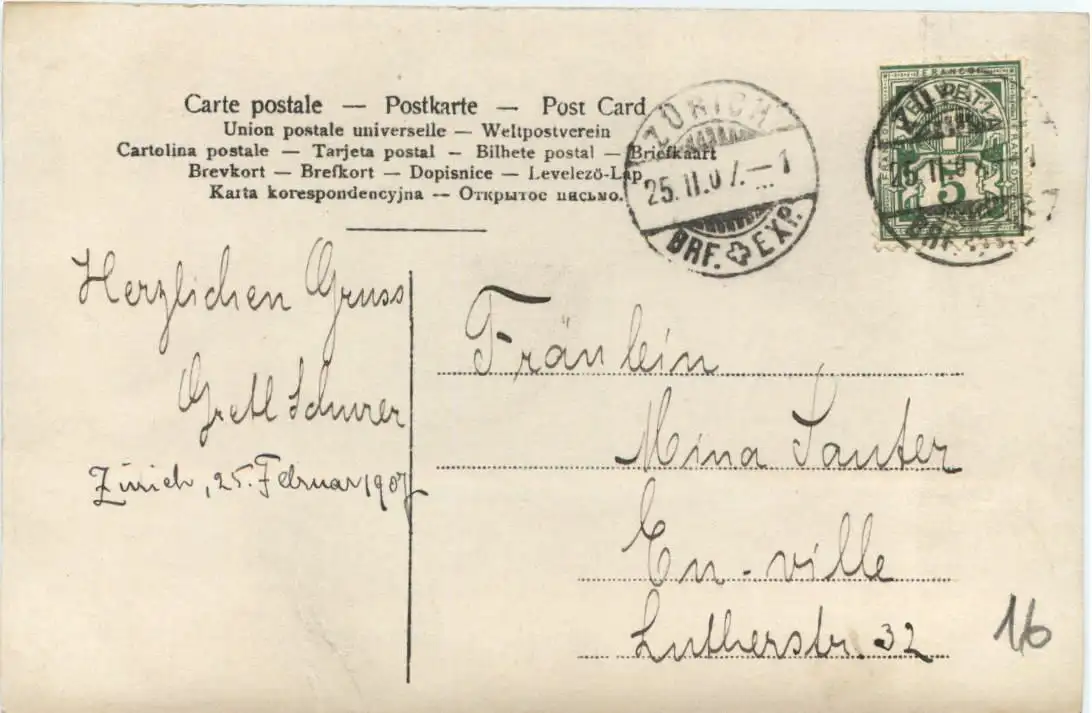 Carte postale — Postkarte — Post Card
Union postale universelle — Weltpostverein
Cartolina postale — Tarjeta postal — Bilhete postal — Briefkaart
Brevkort — Brefkort — Dopisnice — Levelező-Lap
Karta korespondencyjna — Открытое письмо.
ZÜRICH
25.II.07.–1
BRF. EXP.
FRANCO
HELVETIA
5
25.II.07
Herzlichen Gruss
Gretl Schurer
Zürich, 25. Februar 1907
Fräulein
Mina Sauter
En-ville
Lutherstr. 32
16